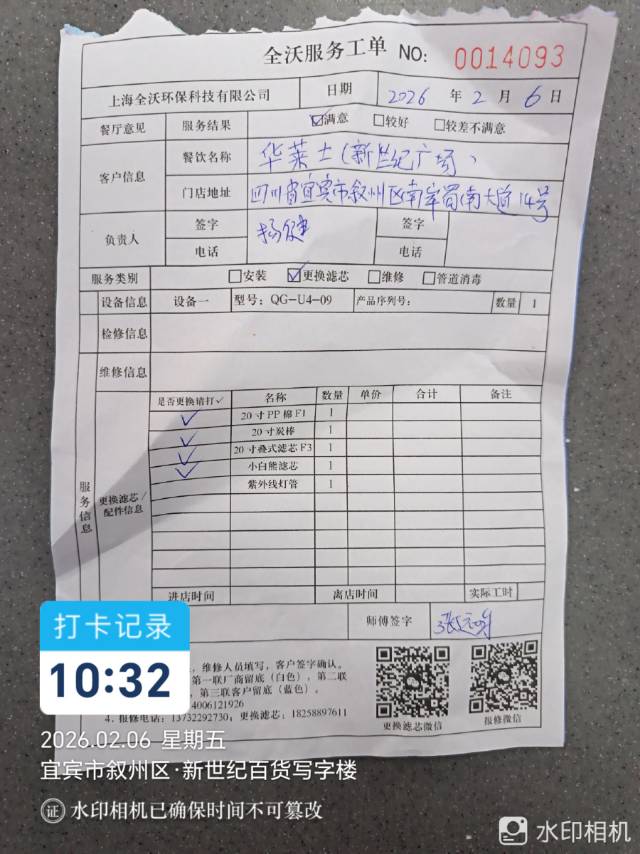 全沃服务工单 NO: 0014093
上海全沃环保科技有限公司 日期 2026 年 2 月 6 日
餐厅意见 服务结果 ☑满意 □较好 □较差不满意
客户信息 餐饮名称 华莱士(新世纪广场)
门店地址 四川省宜宾市叙州区南岸蜀南大道14号
负责人 签字 杨健 签字
电话 电话
服务类别 □安装 ☑更换滤芯 □维修 □管道消毒
设备信息 设备一 型号: QG-U4-09 产品序列号: 数量 1
检修信息
维修信息
服务信息 更换滤芯/配件信息
是否更换请打✓ 名称 数量 单价 合计 备注
✓ 20寸PP棉F1 1
✓ 20寸炭棒 1
✓ 20寸叠式滤芯F3 1
✓ 小白熊滤芯 1
紫外线灯管 1
进店时间 离店时间 实际工时
师傅签字
维修人员填写, 客户签字确认。
第一联厂商留底(白色), 第二联
第三联客户留底(蓝色)。
4006121926
4. 报修电话: 13732292730; 更换滤芯: 18258897611
更换滤芯微信 报修微信
打卡记录
10:32
2026.02.06 星期五
宜宾市叙州区·新世纪百货写字楼
证 水印相机已确保时间不可篡改
水印相机